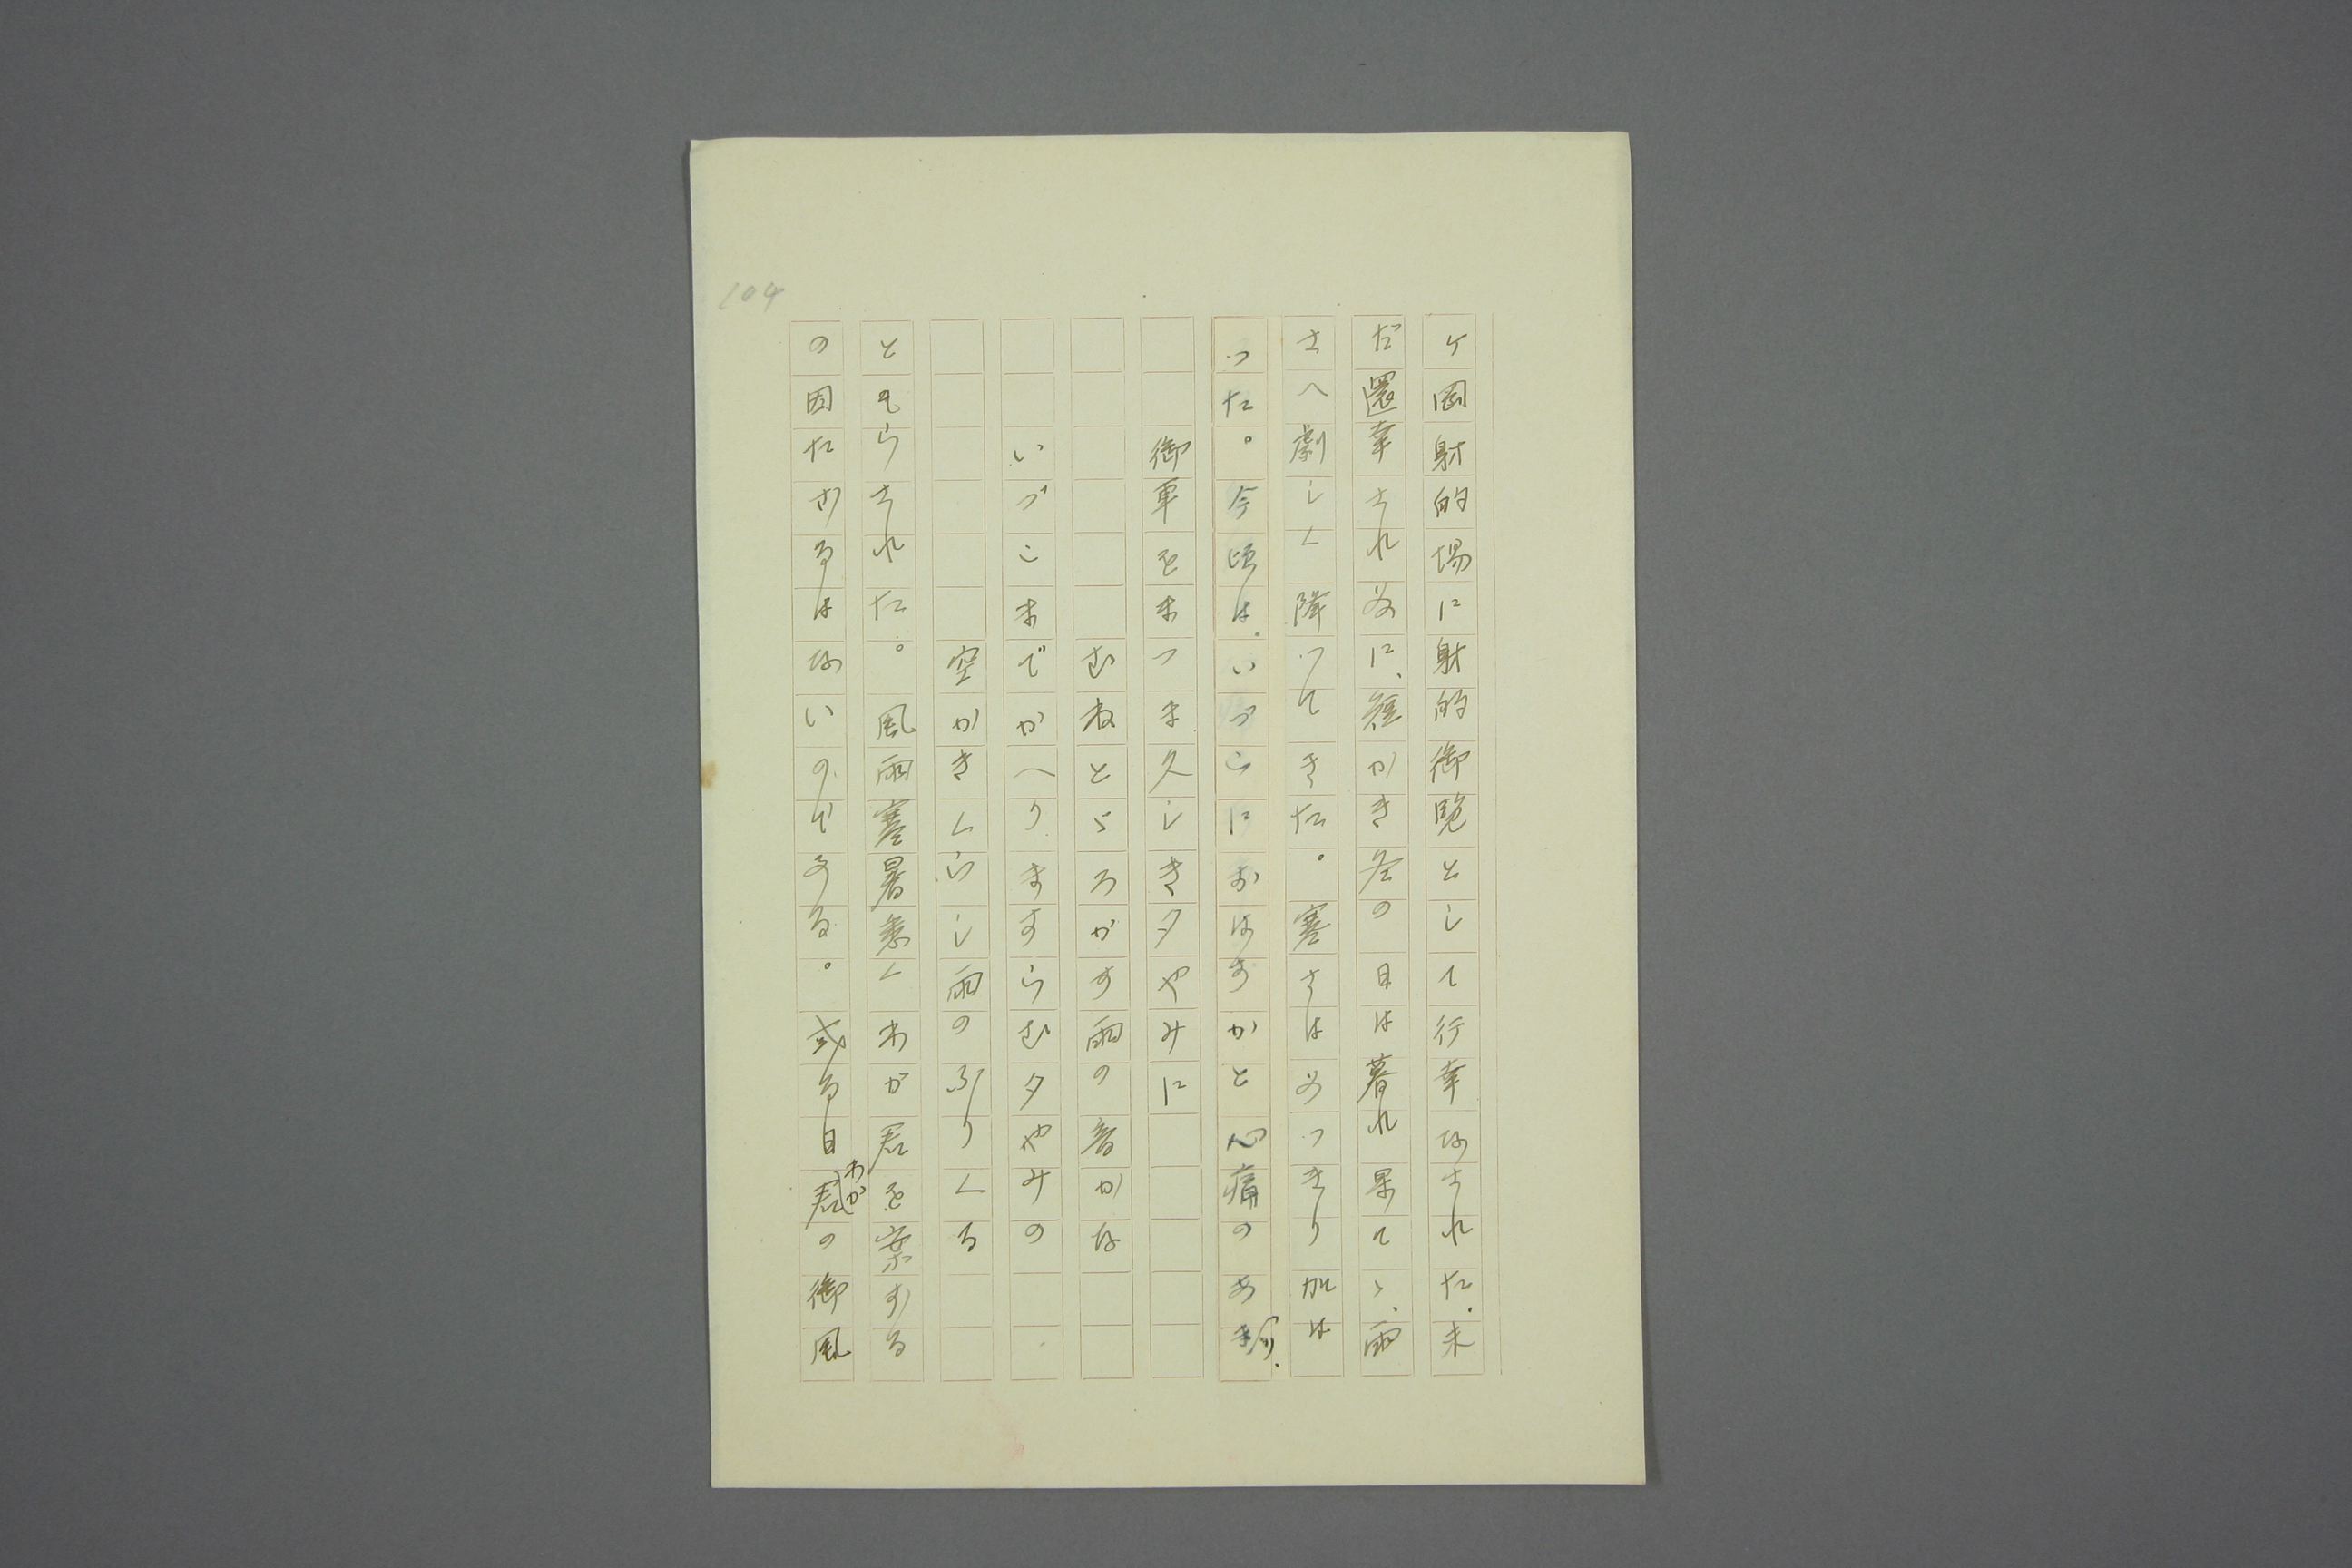 ケ岡射的場に射的御覧として行幸なされた。未
だ還幸されぬに、短かき冬の日は暮れ果てゝ、雨
さへ劇しく降つてきた。寒さはめつきり加は
つた。今頃は、いづこにおはすかと心痛のあまり、
御車をまつま久しき夕やみに
むねとゞろかす雨の音かな
いづこまでかへりますらむ夕やみの
空かきくらし雨のふりくる
ともらされた。風雨寒暑悉くわが君を案ずる
の因たらざるはないのである。或る日わが君の御風
104